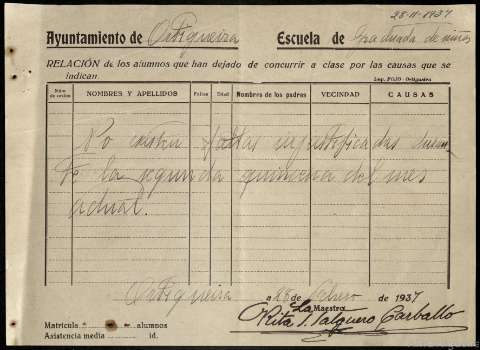 28-II-1937
Ayuntamiento de Ortigueira Escuela de graduada de niños
RELACIÓN de los alumnos que han dejado de concurrir a clase por las causas que se
indican.
Imp. FOJO - Ortigueira
Núm. de orden NOMBRES Y APELLIDOS Faltas Edad Nombres de los padres VECINDAD CAUSAS
No existen faltas injustificadas duran-
te la segunda quincena del mes
actual.
Ortigueira a 28 de febrero de 1937
La Maestra
Rita J. Salguero Carballo
Matrícula alumnos
Asistencia media id.